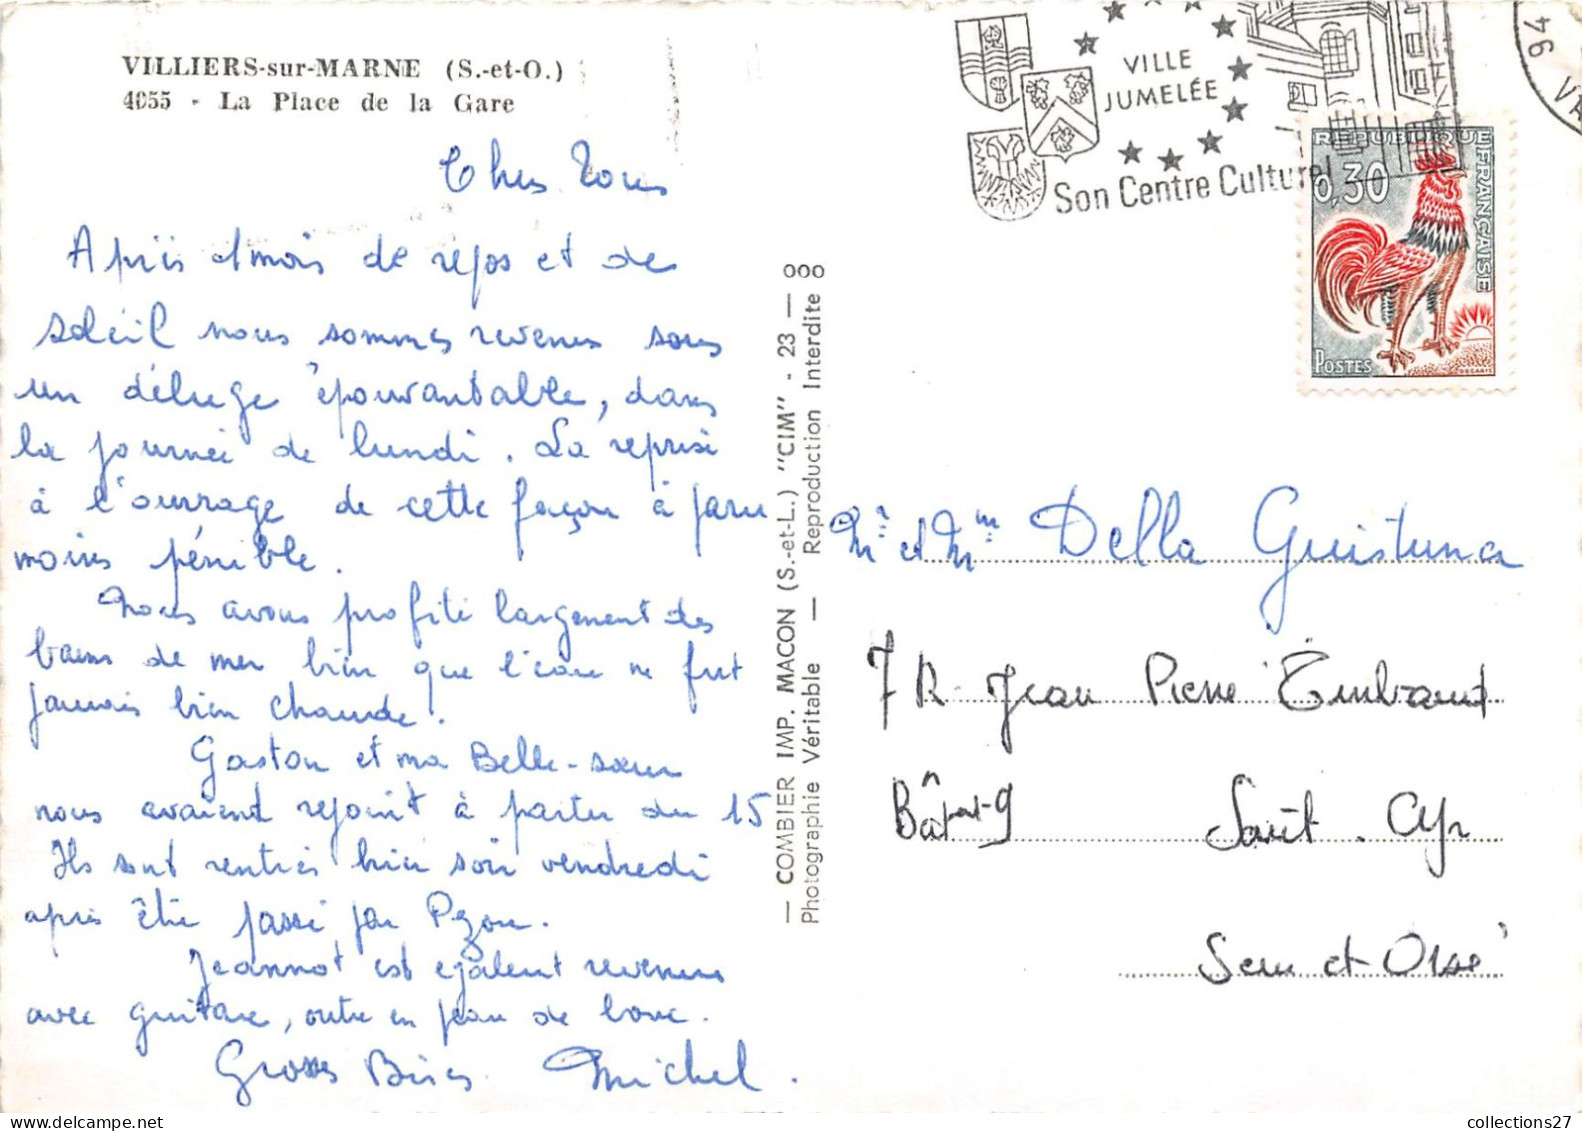 VILLIERS-sur-MARNE (S.-et-O.)
4055 - La Place de la Gare
Chers Tous
Après 1 mois de repos et de
soleil nous sommes revenus sous
un déluge épouvantable, dans
la journée de lundi. La reprise
à l'ouvrage de cette façon à paru
moins pénible.
Nous avons profité largement des
bains de mer bien que l'eau ne fut
jamais bien chaude.
Gaston et ma Belle-soeur
nous avaient rejoint à partir du 15
Ils sont rentrés hier soir vendredi
après être passé par
Jeannot est egalent revenu
avec guitare, outre en peau de bouc.
Grosses Bises Michel.
— COMBIER IMP. MACON (S.-et-L.) "CIM" - 23 — 000
Photographie Véritable — Reproduction Interdite
VILLE
JUMELÉE
Son Centre Culturel
94 VA
REPUBLIQUE FRANÇAISE
0,30
POSTES
DECARIS
Mr et Mme Della Guistina
7 R. Jean Pierre Timbaud
Bâtment 9 Saint. Cyr
Seine et Oise
collections27